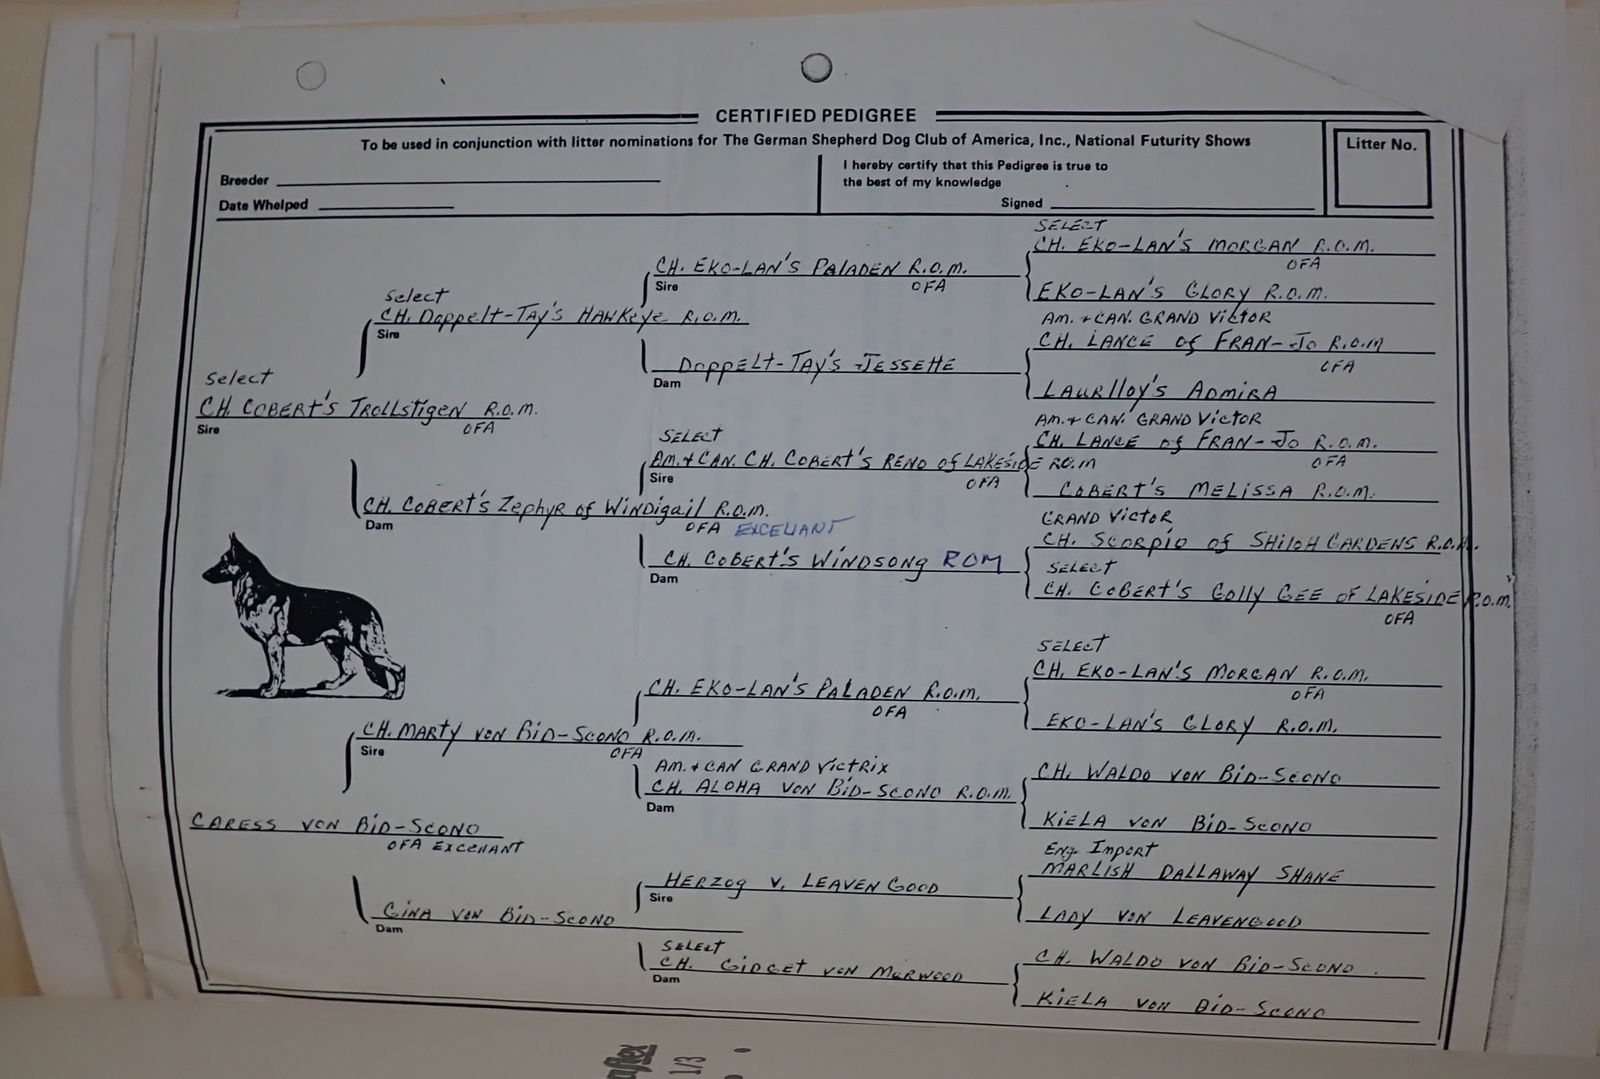 CERTIFIED PEDIGREE
To be used in conjunction with litter nominations for The German Shepherd Dog Club of America, Inc., National Futurity Shows
Litter No.
Breeder
Date Whelped
I hereby certify that this Pedigree is true to
the best of my knowledge
Signed
Select
CH. COBERT'S TROLLSTIGEN R.O.M.
Sire
OFA
Select
CH. Doppelt-TAY'S HAWKEYE R.O.M.
Sire
CH. EKO-LAN'S PALADEN R.O.M.
Sire
OFA
SELECT
CH. EKO-LAN'S MORGAN R.O.M.
OFA
EKO-LAN'S GLORY R.O.M.
DOPPELT-TAY'S JESSETTE
Dam
AM. & CAN. GRAND VICTOR
CH. LANCE of FRAN-JO R.O.M
OFA
LAURLLOY'S ADMIRA
CH. COBERT'S ZEPHYR of WINDIGAIL R.O.M.
Dam
OFA EXCELLANT
SELECT
AM. & CAN. CH. COBERT'S RENO of LAKESIDE R.O.M
Sire
OFA
AM. & CAN. GRAND VICTOR
CH. LANCE of FRAN-JO R.O.M.
OFA
COBERT'S MELISSA R.O.M.
CH. COBERT'S WINDSONG ROM
Dam
GRAND VICTOR
CH. SCORPIO of SHILOH GARDENS R.O.M.
SELECT
CH. COBERT'S GOLLY GEE OF LAKESIDE R.O.M.
OFA
CARESS VON BID-SCONO
OFA EXCELLANT
CH. MARTY VON BID-SCONO R.O.M.
Sire
OFA
CH. EKO-LAN'S PALADEN R.O.M.
OFA
SELECT
CH. EKO-LAN'S MORGAN R.O.M.
OFA
EKO-LAN'S GLORY R.O.M.
AM. & CAN GRAND VICTRIX
CH. ALOHA VON BID-SCONO R.O.M.
Dam
CH. WALDO VON BID-SCONO
KIELA VON BID-SCONO
GINA VON BID-SCONO
Dam
HERZOG V. LEAVENGOOD
Sire
Eng. Import
MARLISH DALLAWAY SHANE
LADY VON LEAVENGOOD
SELECT
CH. GIDGET VON MARWOOD
Dam
CH. WALDO VON BID-SCONO
KIELA VON BID-SCONO
1/3